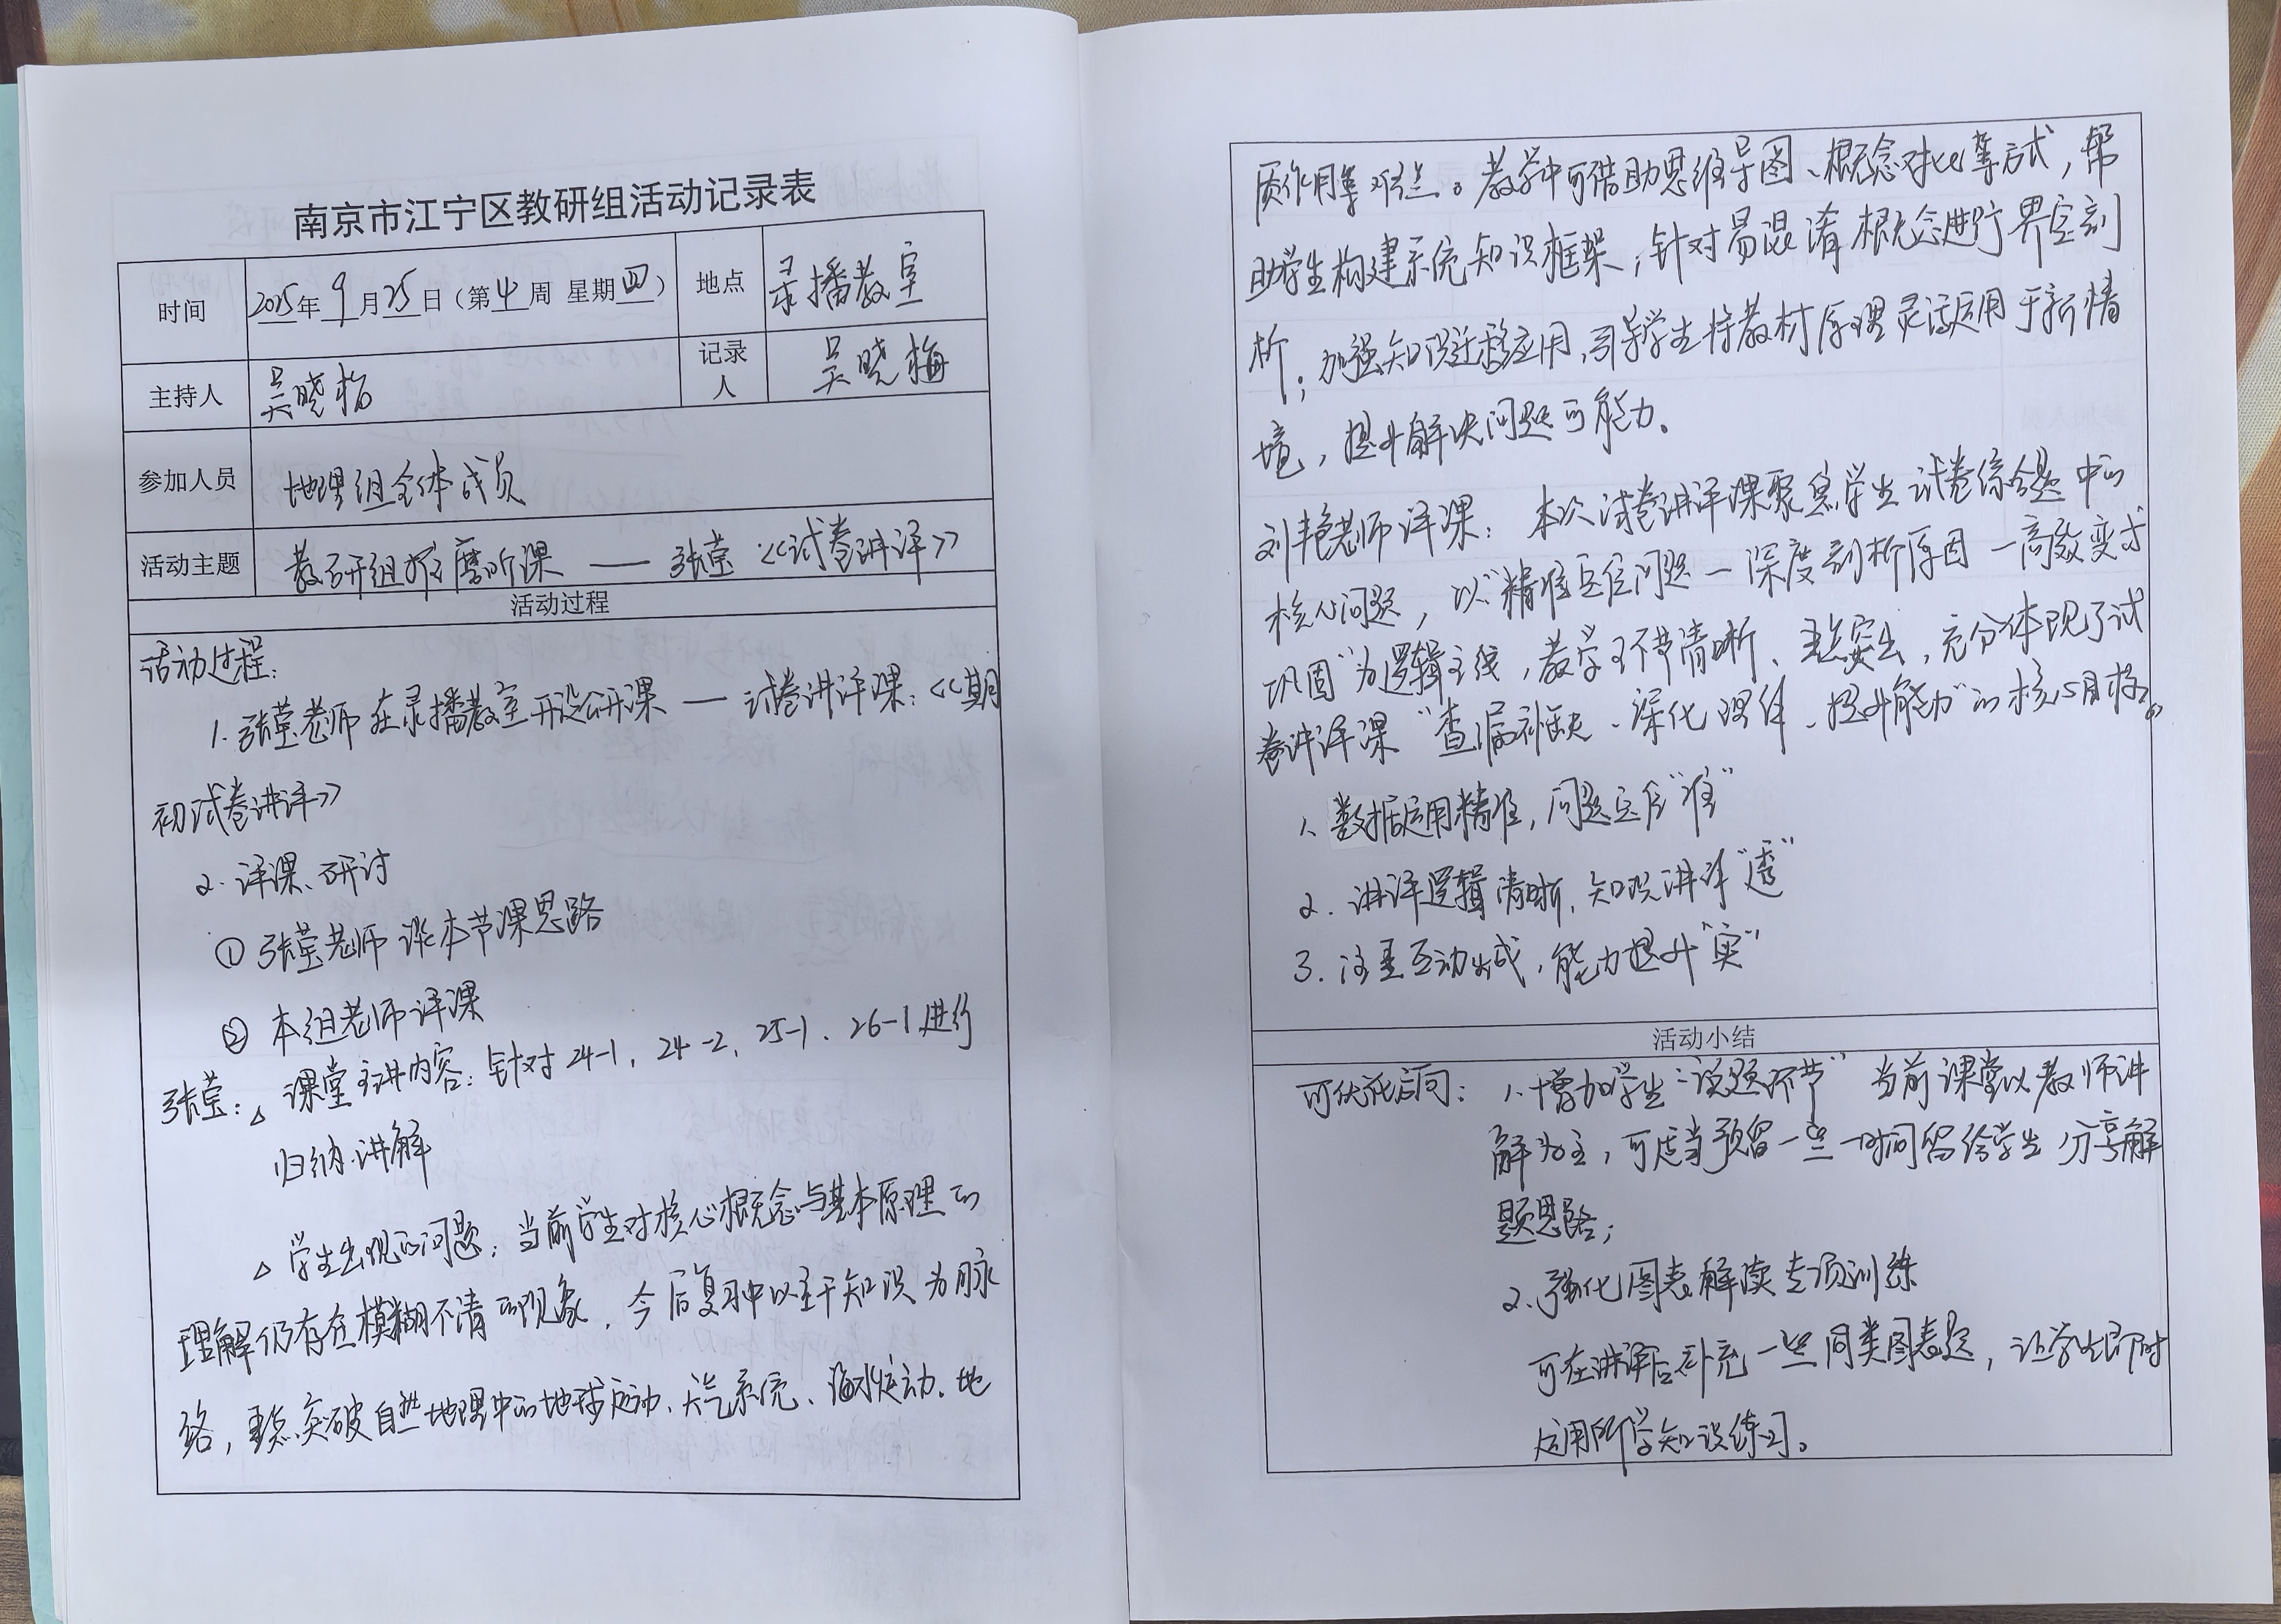 南京市江宁区教研组活动记录表
时间 2025年9月25日（第4周 星期四） 地点 录播教室
主持人 吴晓梅 记录人 吴晓梅
参加人员 地理组全体成员
活动主题 教研组 磨听课 —— 张莹《试卷讲评》
活动过程
活动过程：
1. 张莹老师在录播教室开设公开课 — 试卷讲评课：《期
初试卷讲评》
2. 评课、研讨
① 张莹老师谈本节课思路
② 本组老师评课
张莹：△ 课堂主讲内容：针对24-1，24-2，25-1、26-1进行
归纳讲解
△ 学生出现的问题：当前学生对核心概念与基本原理的
理解仍存在模糊不清的现象，今后复习中以主干知识为脉
络，重点突破自然地理中的地球运动、大气系统、海水运动、地
质作用等难点。教学中可借助思维导图、概念对比等方式，帮
助学生构建系统知识框架；针对易混淆概念进行界定剖
析；加强知识迁移应用，引导学生将教材原理灵活运用于新情
境，提升解决问题的能力。
刘艳老师评课：本次试卷讲评课聚焦学生试卷综合题中的
核心问题，以“精准定位问题—深度剖析原因—高效变式
巩固”为逻辑主线，教学环节清晰、重点突出，充分体现了试
卷讲评课“查漏补缺、深化理解、提升能力”的核心目标。
1、数据运用精准，问题定位“准”
2. 讲评逻辑清晰，知识讲评“透”
3. 注重互动生成，能力提升“实”
活动小结
可优化方向：1、增加学生“说题环节” 当前课堂以教师讲
解为主，可适当预留一些时间留给学生分享解
题思路；
2、强化图表解读专项训练
可在讲评后补充一些同类图表题，让学生即时
运用所学知识练习。